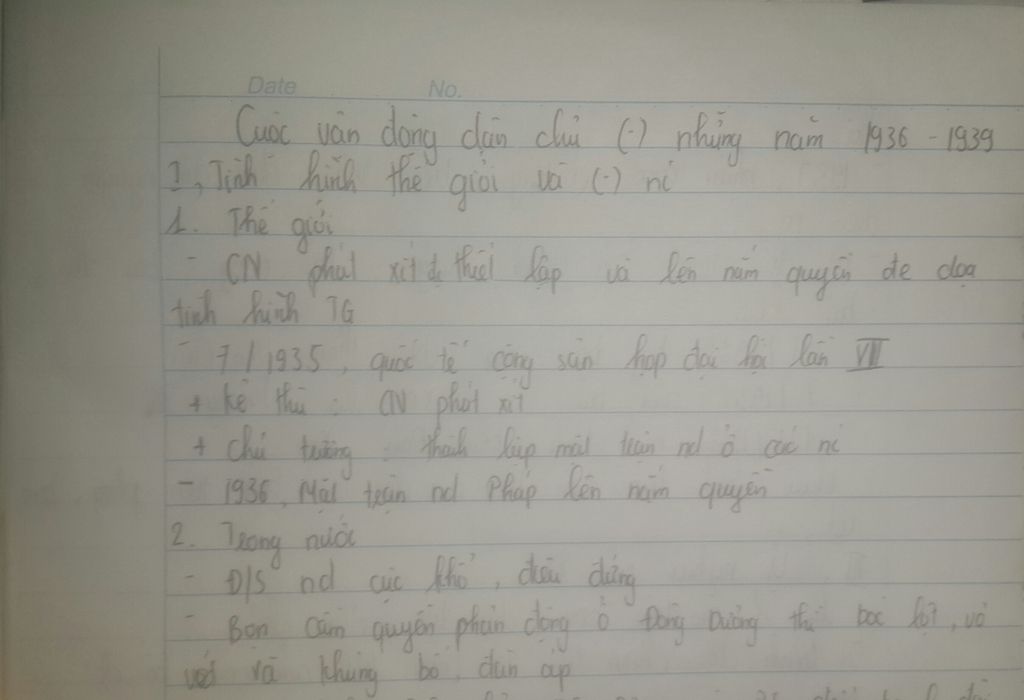 Date No.
Cuộc vận động dân chủ (-) những năm 1936 - 1939
I, Tình hình thế giới và (-) nc
1. Thế giới
- CN phát xít đc thiết lập và lên nắm quyền đe doạ
tình hình TG
- 7/1935, quốc tế cộng sản họp đại hội lần VII
+ kẻ thù : CN phát xít
+ chủ trương : thành lập mặt trận nd ở các nc
- 1936, Mặt trận nd Pháp lên nắm quyền
2. Trong nước
- Đ/S nd cực khổ, điêu đứng
- Bọn cầm quyền phản động ở Đông Dương thì bóc lột, vơ
vét và khủng bố, đàn áp